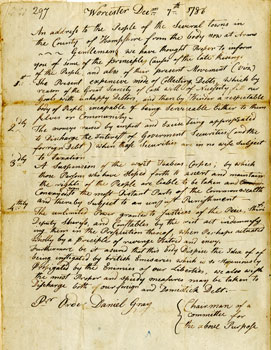 297 Worcester Decm 7th 1786
An address to the People of the Several Towns in
the County of Hampshire from the body now at Arms
Gentlemen, we have thought Proper to inform
you of some of the principle Causes of the late risings
of the People, and also of their present Movement (viz.)
1st The Present expensive mode of Collecting Debts Which by
reason of the Great Scarcity of Cash will of Necessity fill our
goals with unhappy Debtors and thereby Render a respectable
body of People incapable of being Serviceable Either to themselves
or Community
2dly The monies raised by impost and Excise being appropriated
to Discharge the interest of Government Securities (and not the
forreign Debt) When those Securities are in no wise Subject
to Taxation
3dly A Suspension of the writ Habies Corpes, by which
those Persons who have Steped forth to assert and maintain
the rights of the People are liable to be taken and
Conveyed to the most Distant Part of the Commonwealth
and thereby Subject to an unjust Punishment
4thly The unlimited Power granted to Justices of the Peace,
Deputy Sheriffs and Constables by the riot act indemnifying
them in the Prosecution thereof, When Perhaps actuated
Purely by a Principle of revenge hatred and envy.
Furthermore be it assured that this body Despise the Idea of
being instigated by british Emissaries Which is so Strenuously
Propagated by the Enemies of our Liberties, we also wish
the most Proper and Speedy measures may be taken to
Discharge both our foreign and Domestick Debt
Pr Order Daniel Gray
Chairman of a
Committee for
the above Purpose